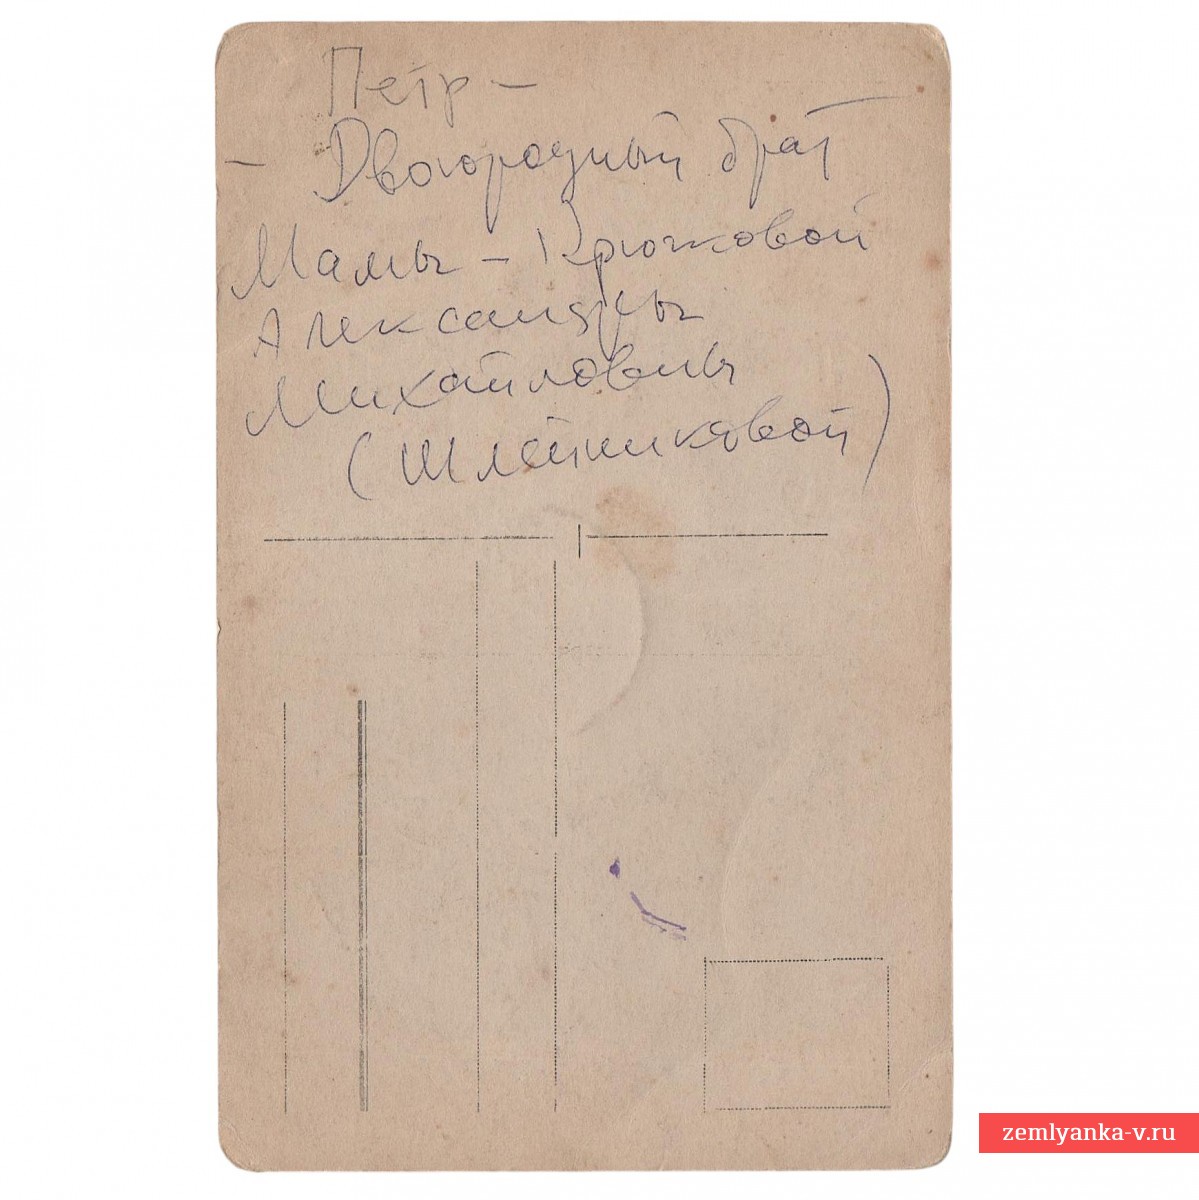 Пётр –
– Двоюродный брат
Мамы – Крючковой
Александры
Михайловны
(Шлейниковой)
zemlyanka-v.ru